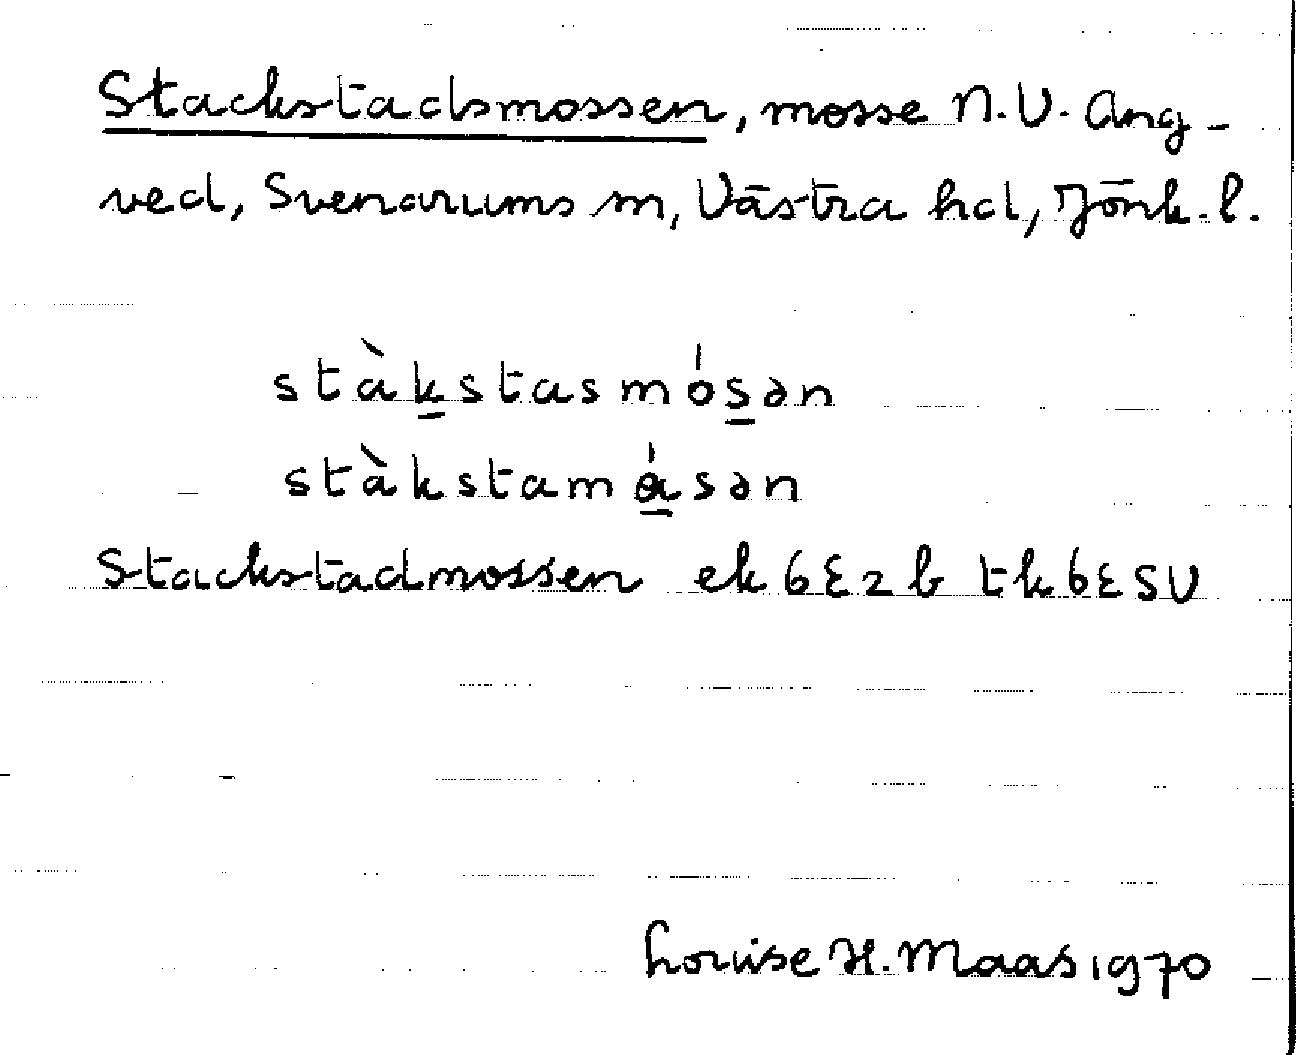 Stackstadsmossen, mosse N.V. Ang-
ved, Svenarums sn, Västra hd, Jönk. l.
stàkstasmósən
stàkstamásən
Stackstadmossen ek 6E2b tk6ESV
Louise H. Maas 1970